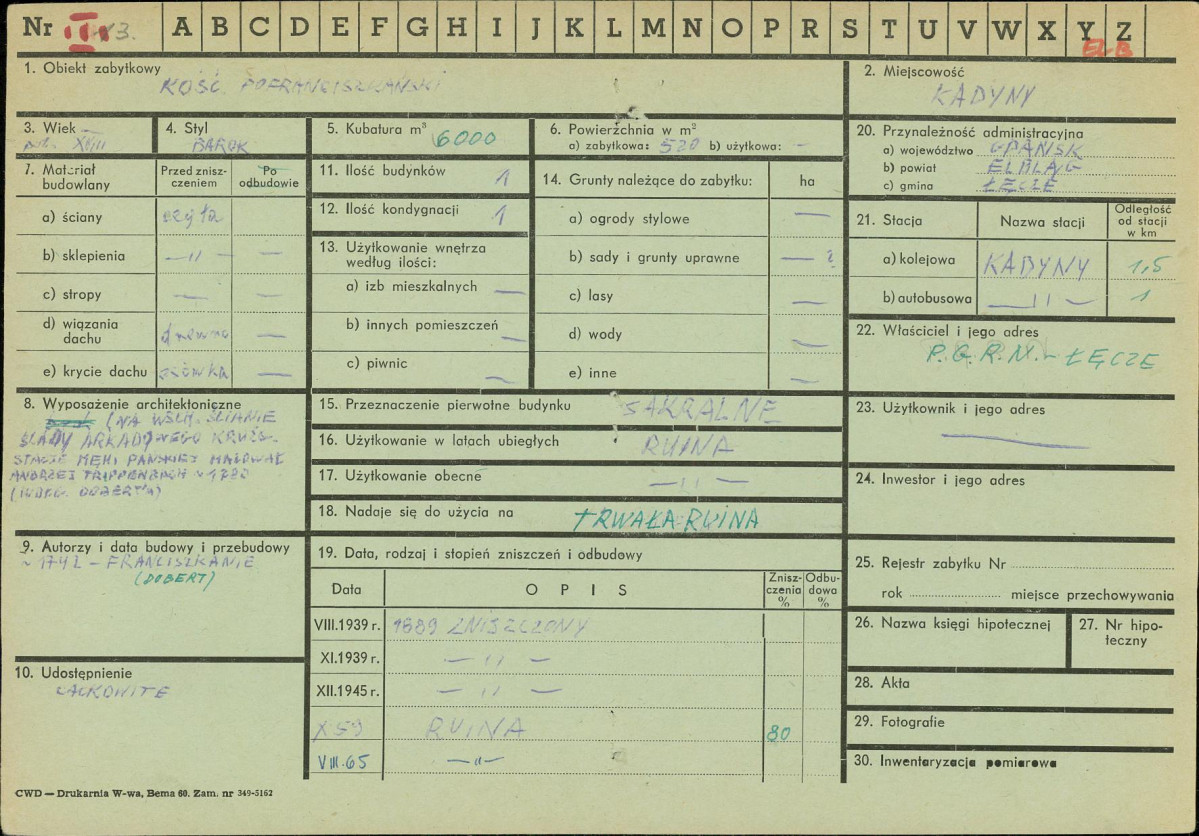 Nr II 3.
A B C D E F G H I J K L M N O P R S T U V W X Y Z
EL-B
1. Obiekt zabytkowy
KOŚĆ. POFRANCISZKAŃSKI
2. Miejscowość
KADYNY
3. Wiek
poł. XVIII
4. Styl
BAROK
5. Kubatura m³
6000
6. Powierzchnia w m²
a) zabytkowa: 520 b) użytkowa: —
20. Przynależność administracyjna
a) województwo GDAŃSK
b) powiat ELBLĄG
c) gmina ŁĘCZE
7. Materiał budowlany
Przed zniszczeniem
Po odbudowie
a) ściany cegła —
b) sklepienia — " — —
c) stropy — —
d) wiązania dachu drewno —
e) krycie dachu —
11. Ilość budynków 1
12. Ilość kondygnacji 1
13. Użytkowanie wnętrza według ilości:
a) izb mieszkalnych —
b) innych pomieszczeń —
c) piwnic —
14. Grunty należące do zabytku: ha
a) ogrody stylowe —
b) sady i grunty uprawne — ?
c) lasy —
d) wody —
e) inne —
21. Stacja
Nazwa stacji
Odległość od stacji w km
a) kolejowa KADYNY 1,5
b) autobusowa — " — 1
22. Właściciel i jego adres
P.G.R.N. - ŁĘCZE
8. Wyposażenie architektoniczne
(NA WSCH. ŚCIANIE
ŚLADY ARKADOWEGO KRUŻG.
STACJE MĘKI PAŃSKIEJ MALOWAŁ
ANDRZEJ TRIPPENBACH ~ 1780
(WDŁG. DOBERT'A)
15. Przeznaczenie pierwotne budynku SAKRALNE
16. Użytkowanie w latach ubiegłych RUINA
17. Użytkowanie obecne — " —
18. Nadaje się do użycia na TRWAŁA RUINA
23. Użytkownik i jego adres
—
24. Inwestor i jego adres
9. Autorzy i data budowy i przebudowy
~ 1742 - FRANCISZKANIE
(DOBERT)
10. Udostępnienie
CAŁKOWITE
19. Data, rodzaj i stopień zniszczeń i odbudowy
Data
OPIS
Zniszczenia %
Odbudowa %
VIII.1939 r. 1889 ZNISZCZONY
XI.1939 r. — " —
XII.1945 r. — " —
X 59 RUINA 80
VIII.65 — " —
25. Rejestr zabytku Nr
rok miejsce przechowywania
26. Nazwa księgi hipotecznej
27. Nr hipoteczny
28. Akta
29. Fotografie
30. Inwentaryzacja pomiarowa
CWD — Drukarnia W-wa, Bema 60. Zam. nr 349-5162